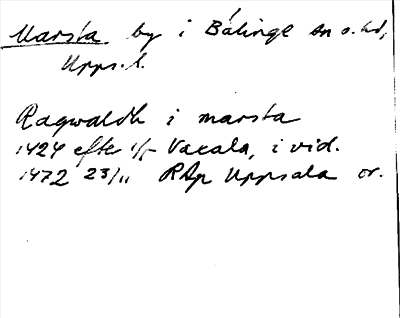 Marsta by i Bälinge sn o. hd,
Upps. l.
Ragwaldh i marsta
1424 efte 1/5 Vacala, i vid.
1472 23/11 RAp Uppsala or.